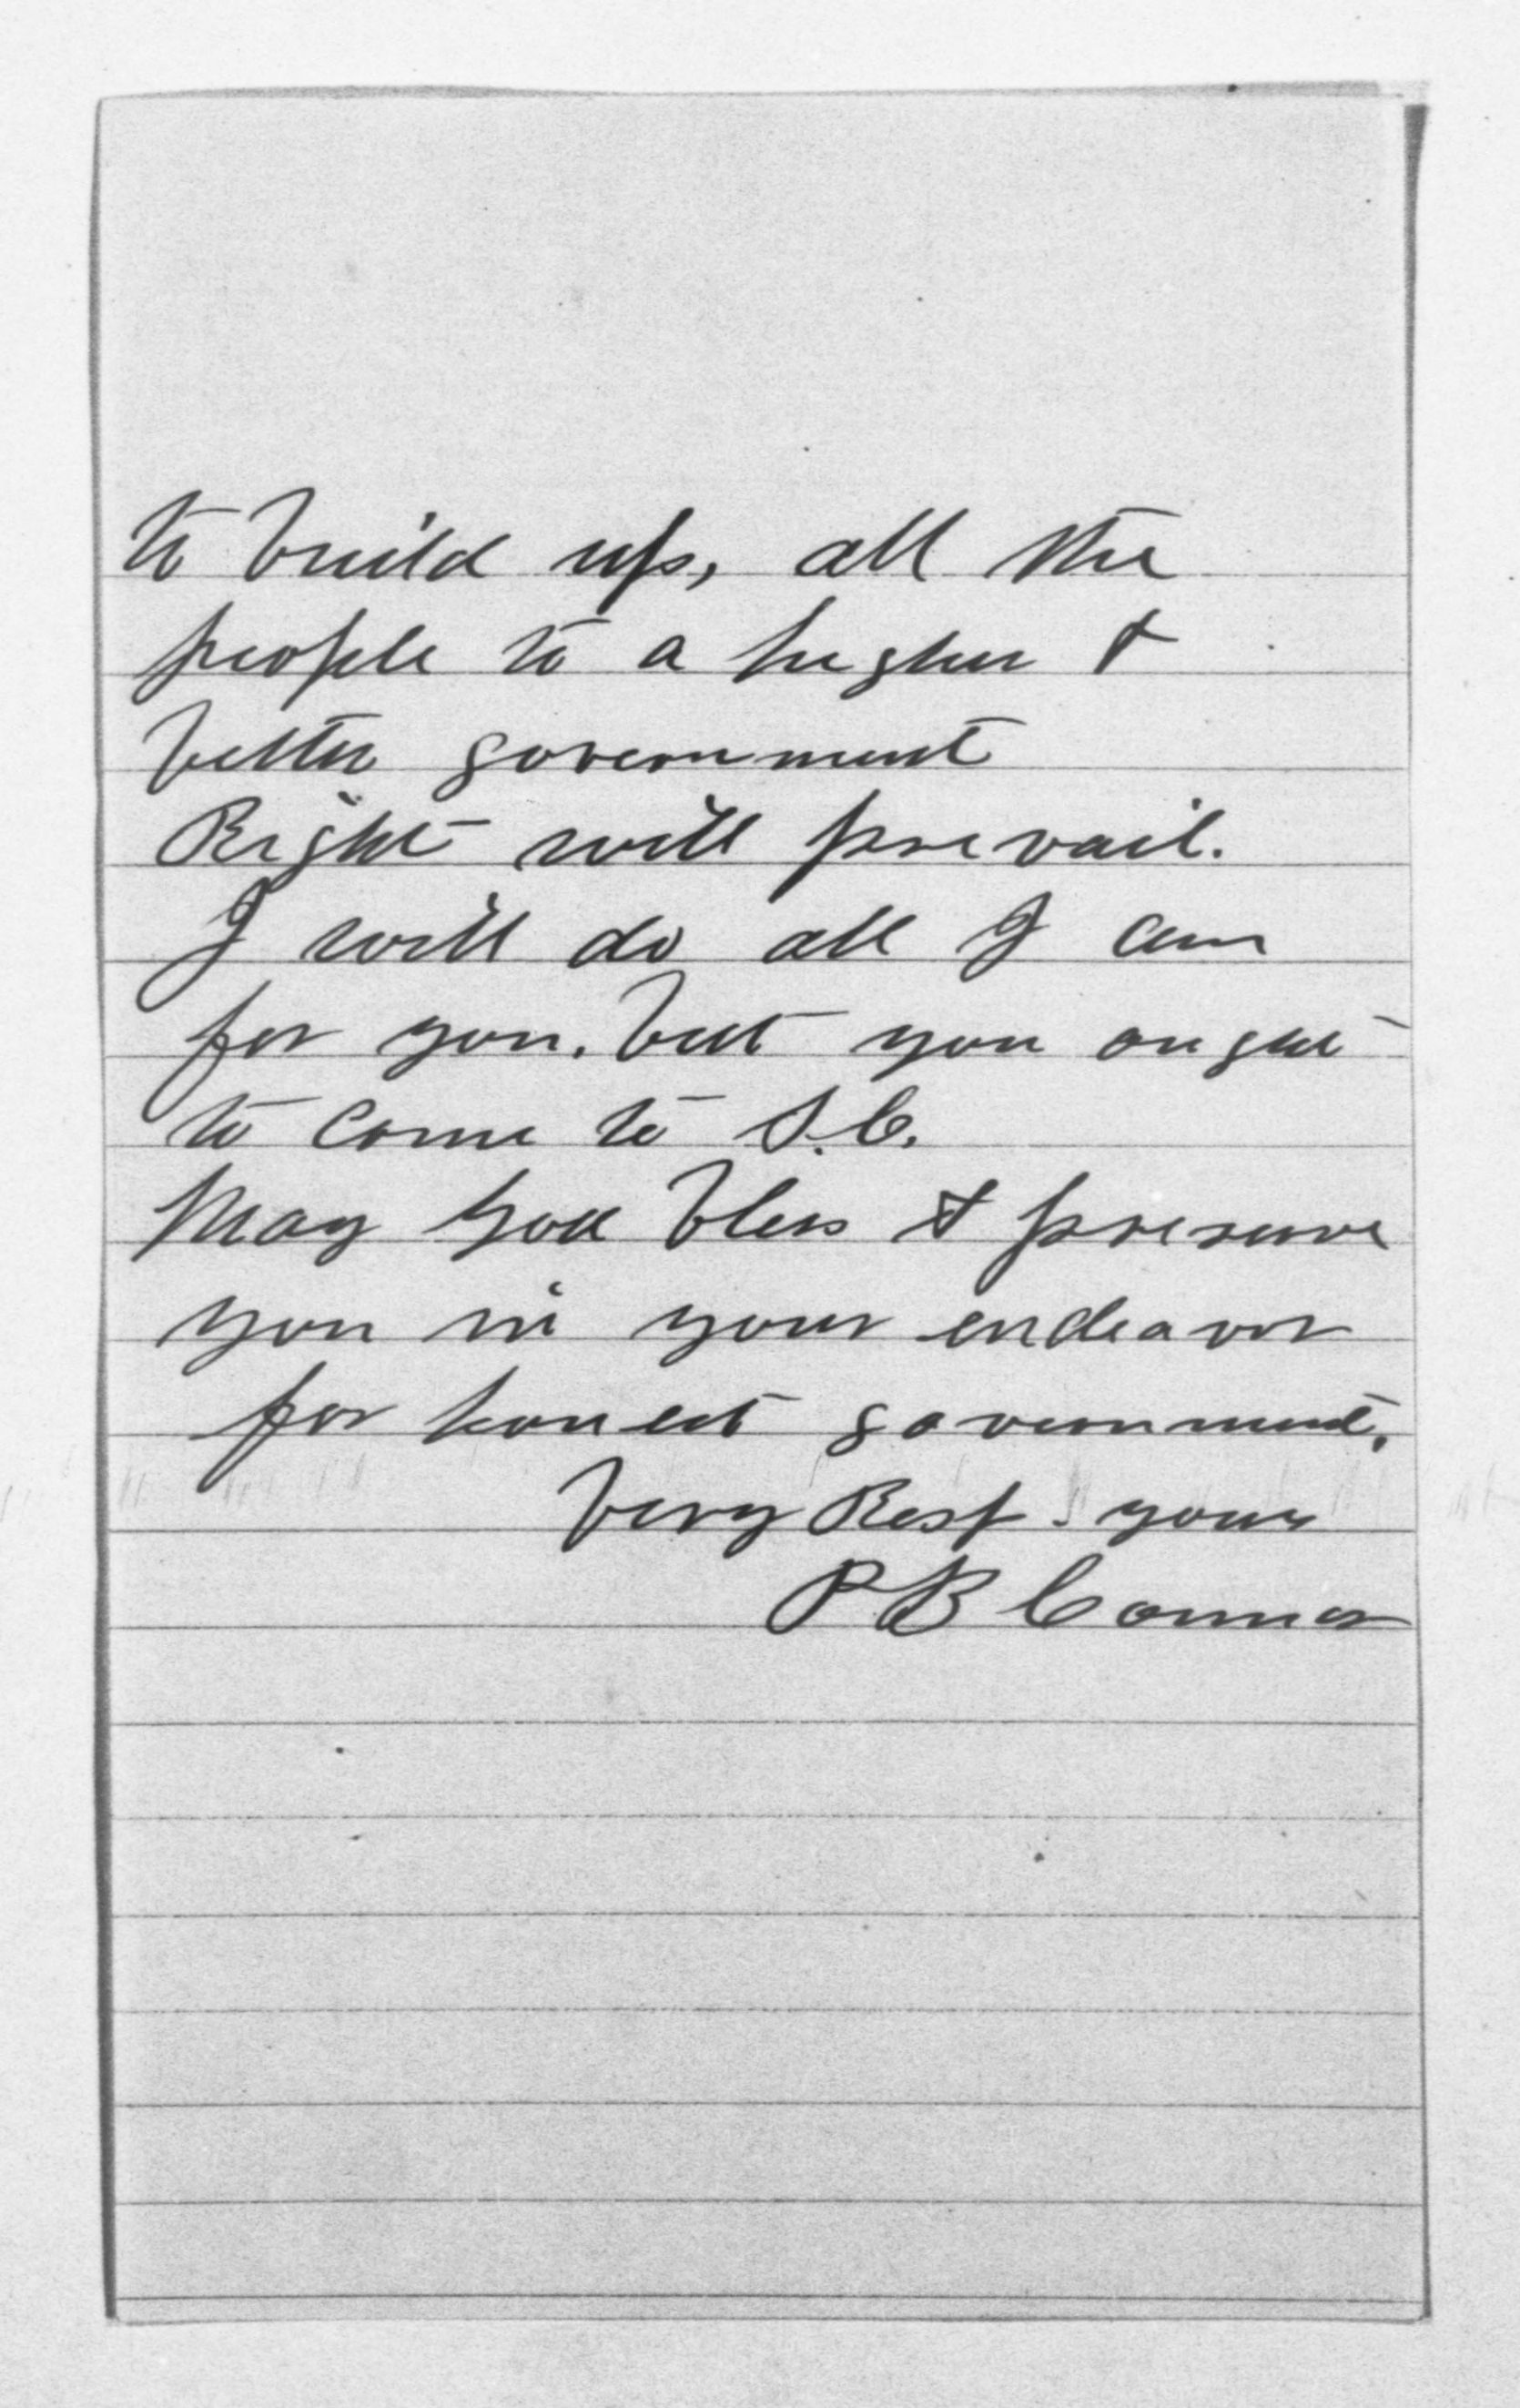 to build up, all the
people to a higher &
better government
Right will prevail.
I will do all I can
for you. but you ought
to come to S.C.
May God bless & preserve
you in your endeavor
for honest government.
Very Resp. yours
P B Connor